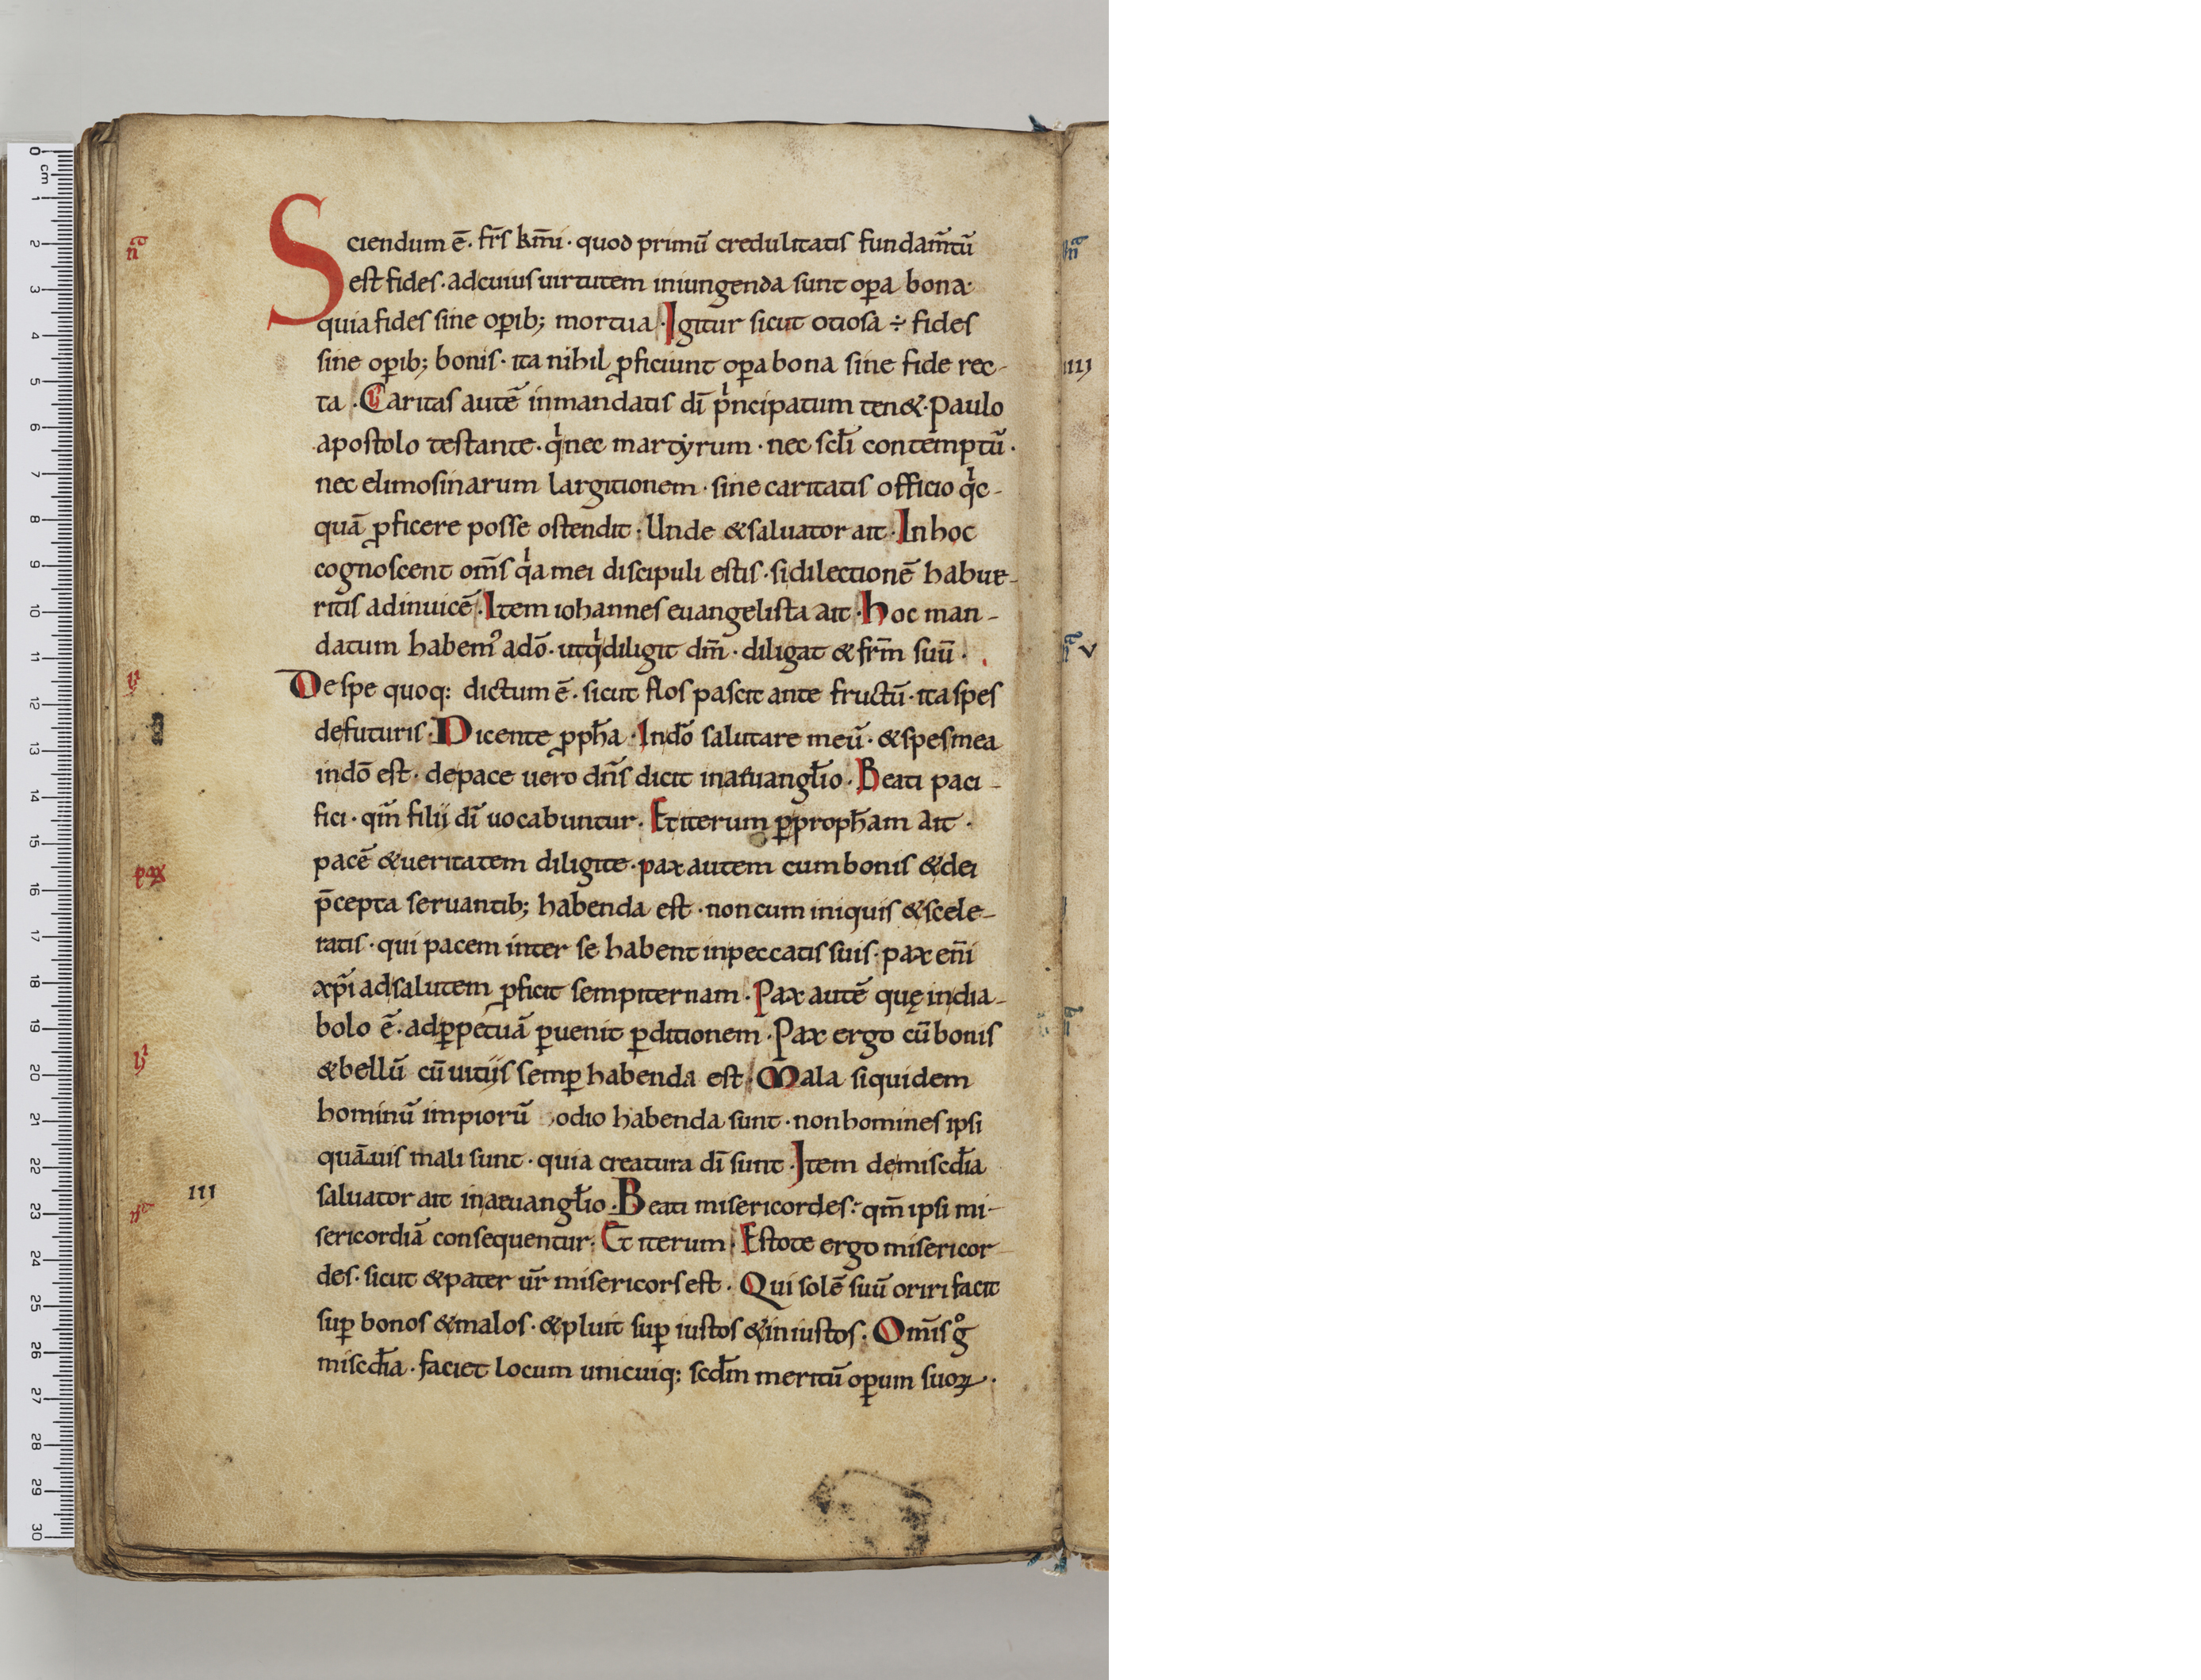 Sciendum ē. fr̄s km̄i · quod primū credulitatis fundam̄tū
est fides · adcuius uirtutem iniungenda sunt oꝑa bona·
quia fides sine oꝑib; mortua · Igitur sicut otiosa ÷ fides
sine oꝑib; bonis · ita nihil ꝓficiunt oꝑa bona sine fide rec-
ta · Caritas autē inmandatis dī pⁱncipatum ten&· Paulo
apostolo testante · qⁱ nec martẏrum · nec scl̄i contēmptū ·
nec elimosinarum largitionem · sine caritatis officio qⁱc-
quā ꝓficere posse ostendit · Unde &saluator ait · Inhoc
cognoscent om̄s qⁱa mei discipuli estis · sidilectionē habue-
ritis adinuicē · Item iohannes euangelista ait · hoc man-
datum habemꝰ adō · utqⁱ diligit dm̄ · diligat &fr̄m suū ·
De spe quoq: dictum ē · sicut flos pascit ante fructū · ita spes
defuturis · Dicente ꝓph̄a · Indō salutare meū · &spes mea
indō est · depace uero dn̄s dicit inaeuangl̄io · Beati paci-
fici · qm̄ filii dī uocabuntur · Et iterum ꝑproph̄am ait ·
pacē &ueritatem diligite · pax autem cum bonis &dei
p̄cepta seruantib; habenda est · non cum iniquis &scele-
ratis · qui pacem inter se habent inpeccatis suis · pax en̄i
xp̄i adsalutem ꝓficit sempiternam · Pax autē quę india-
bolo ē · adꝑpetuā ꝑuenit ꝑditionem · Pax ergo cū bonis
&bellū cū uitiis semꝑ habenda est · Mala siquidem
hominū impiorū odio habenda sunt · non homines ipsi
quāuis mali sunt · quia creatura dī sunt · Item demiscd̄ia
saluator ait inaeuangl̄io · Beati misericordes : qm̄ ipsi mi-
sericordiā consequentur · Et iterum · Estote ergo misericor-
des · sicut &pater ur̄ misericors est · Qui solē suū oriri facit
suꝑ bonos &malos · &pluit suꝑ iustos &iniustos · Om̄is gͦ
miscd̄ia · faciet locum unicuiq: scd̄m meritū oꝑum suoꝝ ·
pax
III
III
V